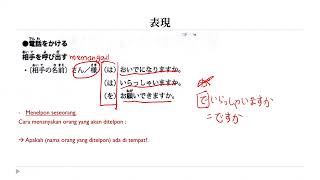 表現
●電話をかける
相手を呼び出す menanggil
・[相手の名前]さん/様 (は) おいでになりますか。
(は) いらっしゃいますか。
(を) お願いできますか。
で いらっしゃいますか
=ですか
- Menelpon seseorang
Cara menanyakan orang yang akan ditelpon :
→ Apakah (nama orang yang ditelpon) ada di tempat?